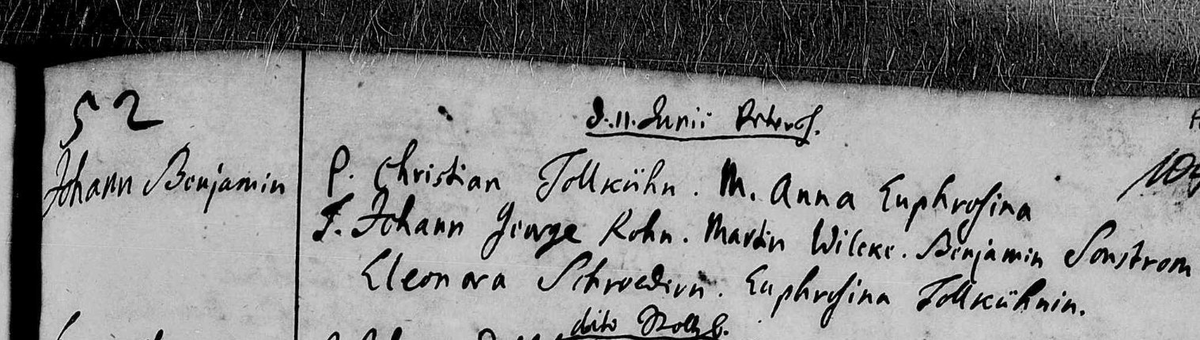 52
d. 11. Junii
Johann Benjamin
P. Christian Tollkühn. M. Anna Euphrosina
T. Johann George Kohn. Martin Wilcke. Benjamin Sonstrom
Eleonora Schroedern. Euphrosina Tollkühnin.
dito